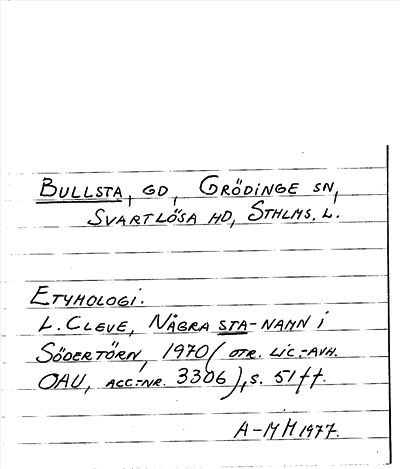 BULLSTA, GD, GRÖDINGE SN,
SVARTLÖSA HD, STHLMS. L.
ETYMOLOGI.
L. CLEVE, NÅGRA STA-NAMN I
SÖDERTÖRN, 1970 (OTR. LIC.-AVH.
OAU, ACC.-NR. 3306), S. 51 ff.
A-MH 1977.